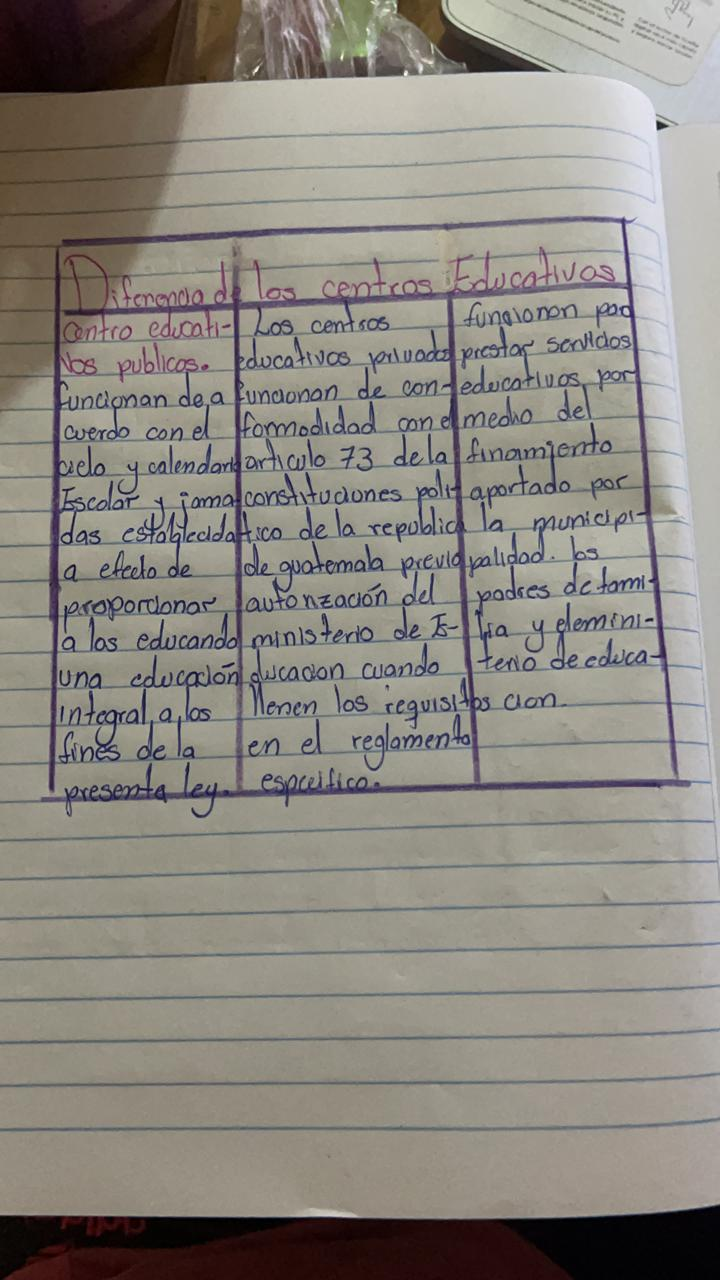 Diferencia de los centros Educativos
centro educati-
vos publicos.
funcionan de a
cuerdo con el
ciclo y calendari
Escolar y jorna
das establecida
a efecto de
proporcionar
a los educando
una educación
integral, a los
fines de la
presenta ley.
Los centros
educativos privados
funcionan de con-
formodidad con el
articulo 73 de la
constituciones poli-
tico de la republica
de guatemala previo
autorización del
ministerio de E-
ducacion cuando
llenen los requisitos
en el reglamento
especifico.
funcionan por
prestar servicios
educativos, por
medio del
finamiento
aportado por
la municipi-
palidad. los
padres de fami-
lia y elemini-
terio de educa-
cion.